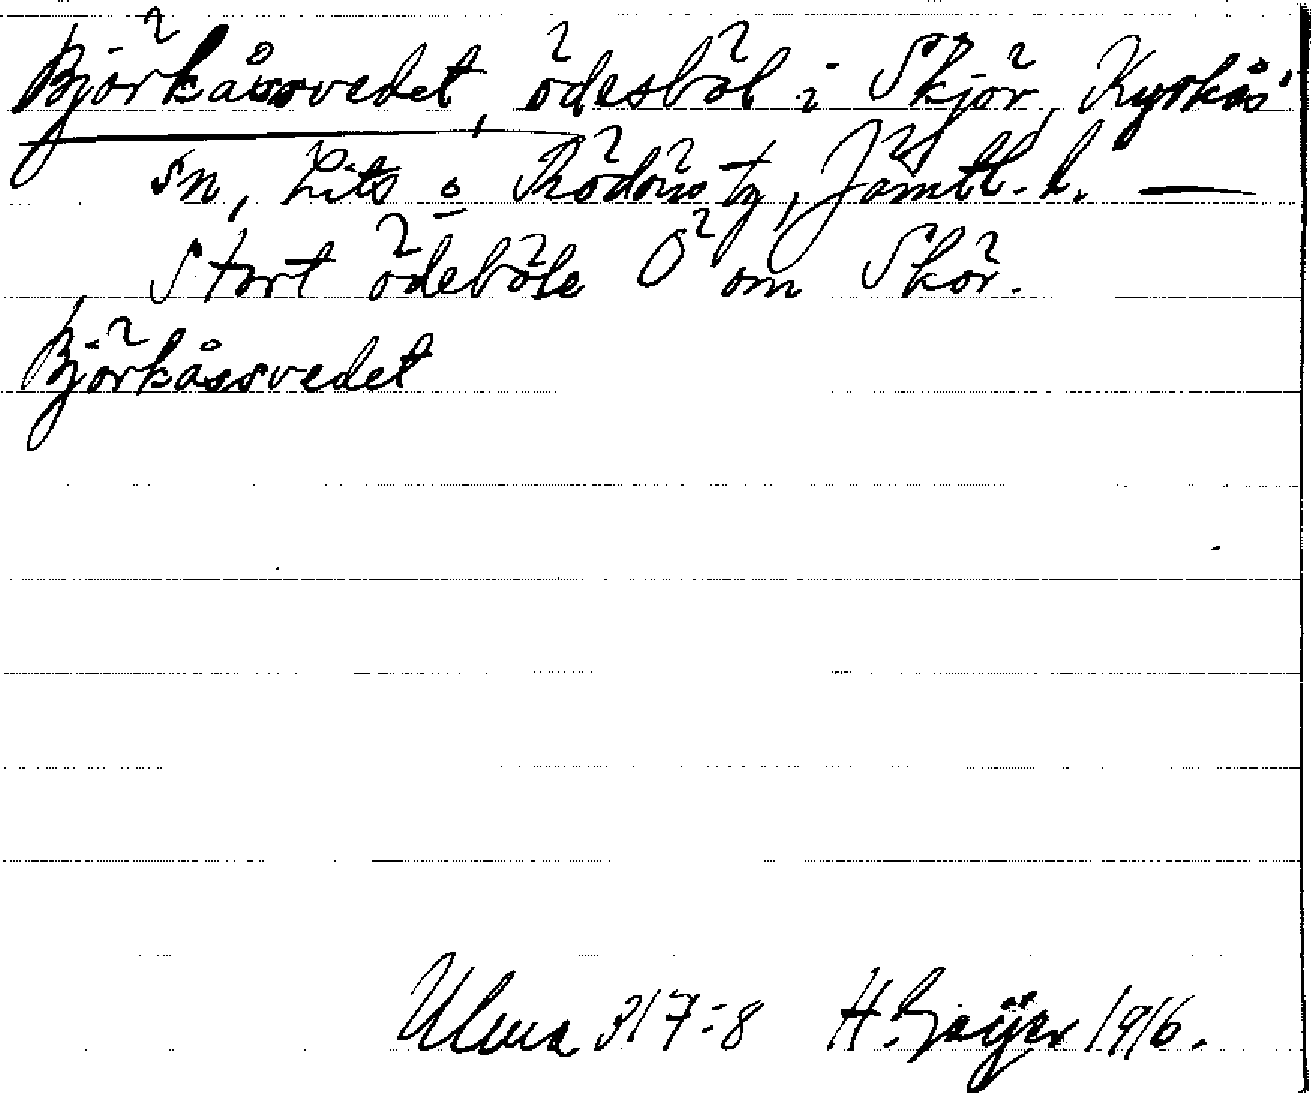 Björkåssvedet, ödesböl i Skjör, Kyrkås
sn, Lits o Rödöns tg, Jämtl. l. —
Stort ödeböle Ö om Skör.
Björkåssvedet
Ulma 317:8 H. Geijer 1916.